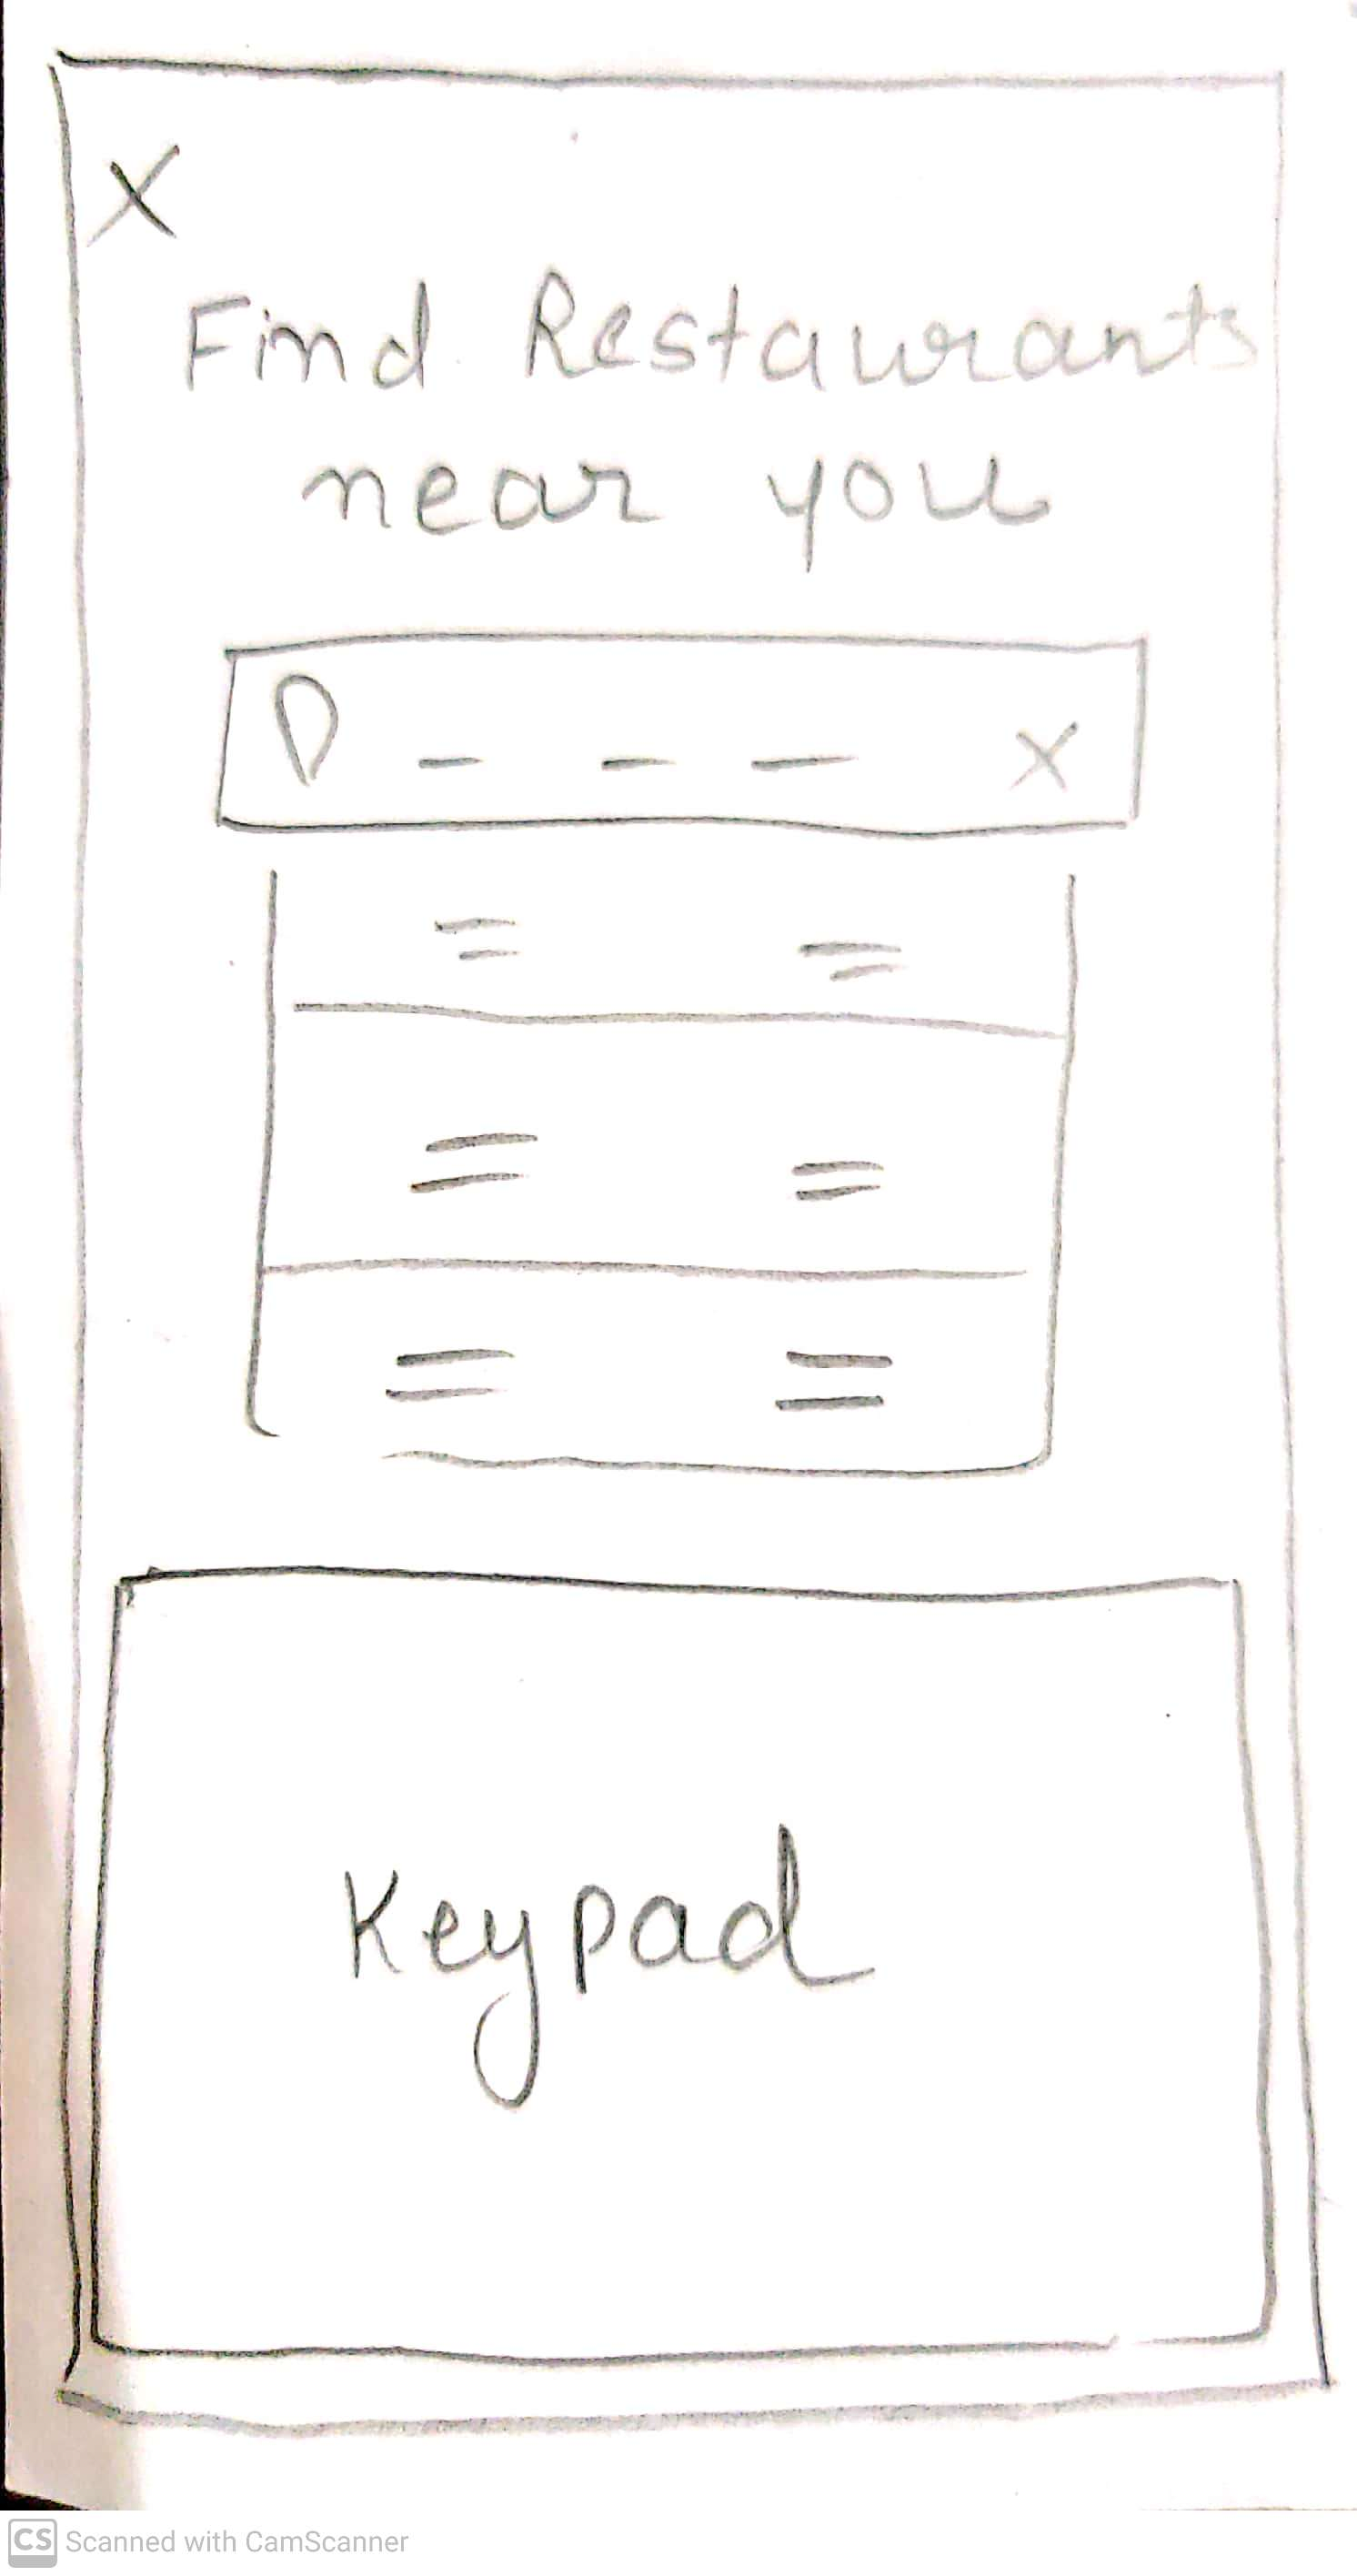 X
Find Restaurants
near you
X
Keypad
CS Scanned with CamScanner